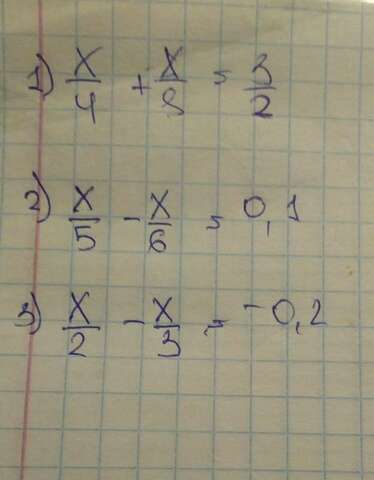 1) x/4 + x/8 = 3/2
2) x/5 - x/6 = 0,1
3) x/2 - x/3 = -0,2